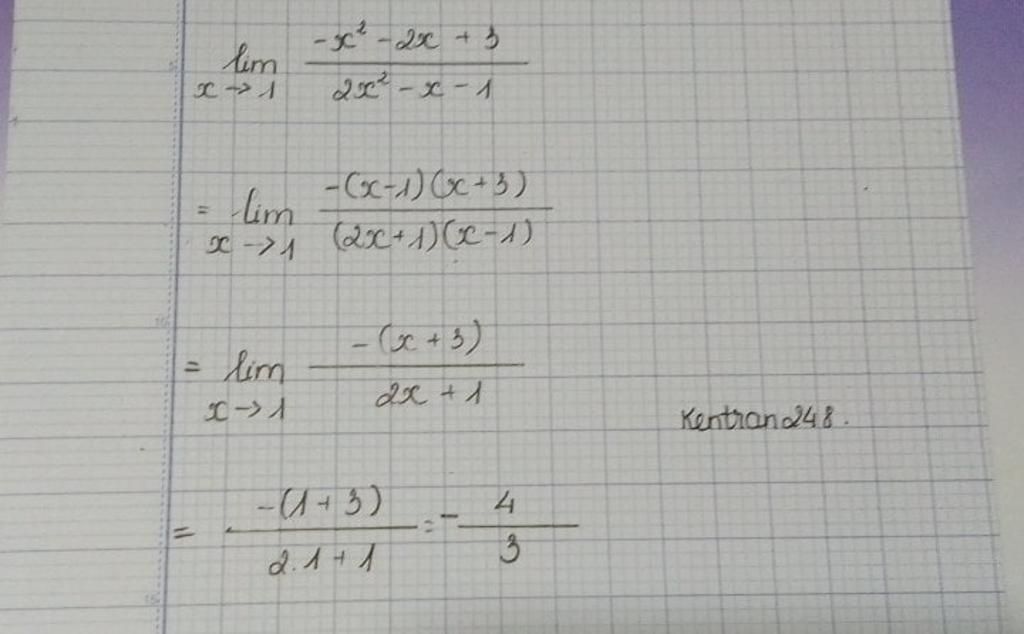 lim x→1 (-x² - 2x + 3)/(2x² - x - 1)
= lim x→1 (-(x-1)(x+3))/((2x+1)(x-1))
= lim x→1 (-(x+3))/(2x+1)
Kentran248.
= (-(1+3))/(2.1+1) = - 4/3